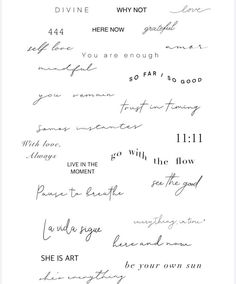 DIVINE
WHY NOT
love
444
HERE NOW
grateful
self love
amor
You are enough
mindful
SO FAR / SO GOOD
you
trust in timing
Somos instantes
11:11
With love,
Always
go with the flow
LIVE IN THE
MOMENT
see the good
Pause to breathe
La vida sigue
everything in time
here and now
SHE IS ART
be your own sun
she's everything